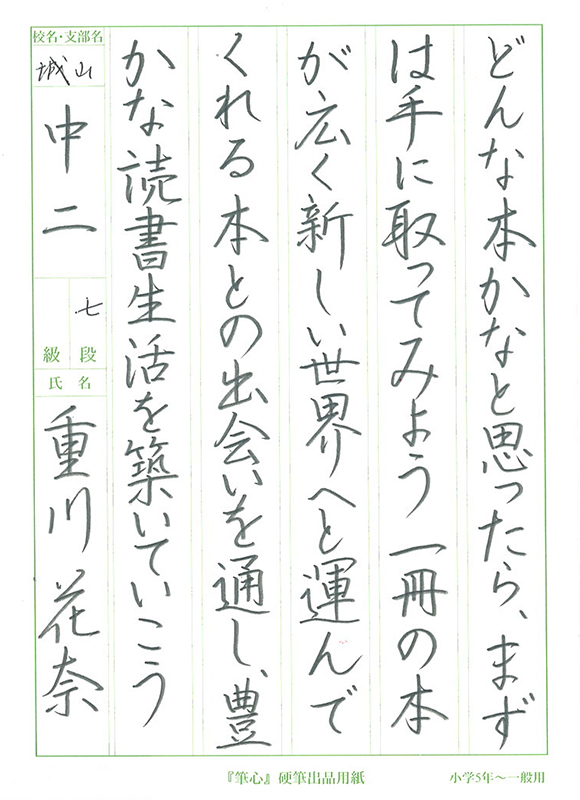 どんな本かなと思ったら、まず
は手に取ってみよう一冊の本
が広く新しい世界へと運んで
くれる本との出会いを通し、豊
かな読書生活を築いていこう
校名・支部名
城山
中二
七
級 段
氏 名
重川花奈
『筆心』硬筆出品用紙
小学5年〜一般用